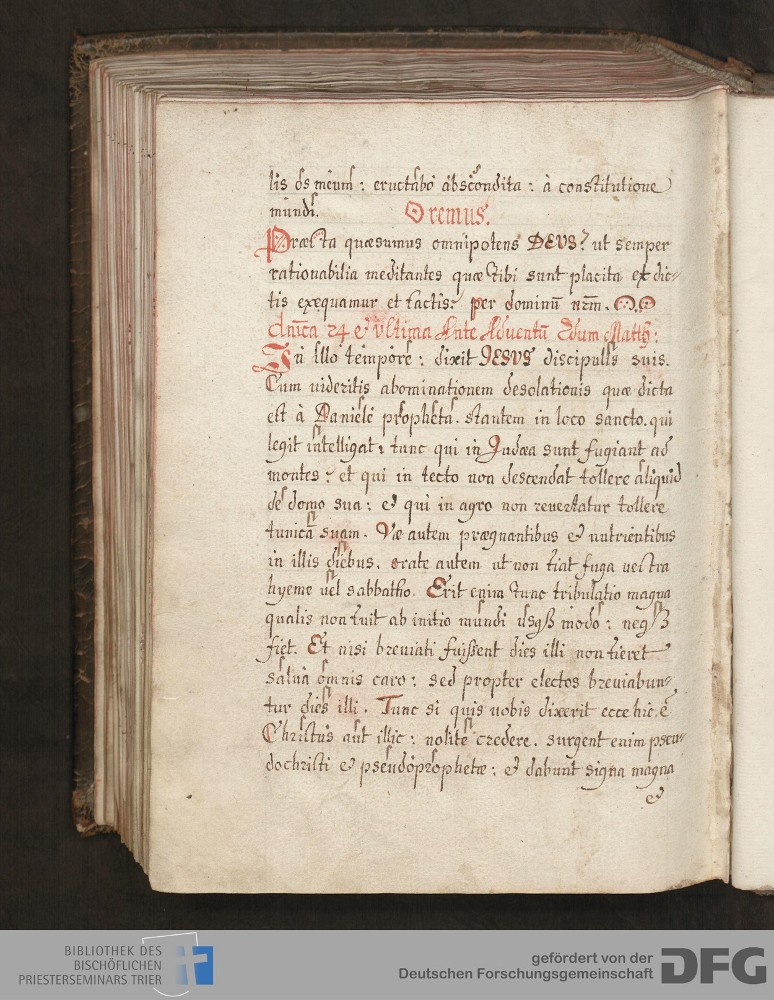 lis os meum : eructabo abscondita : à constitutione
mundi. Oremus.
Præsta quæsumus omnipotens DEVS? ut semper
rationabilia meditantes quæ tibi sunt placita et dic-
tis exequamur et factis: per dominū nrm̄.
Dnīca 24 et Vltima Ante Adventū Scdum Matth:
In illo tempore : dixit JESVS discipulis suis.
Cum uideritis abominationem desolationis quæ dicta
est à Daniele propheta. stantem in loco sancto. qui
legit intelligat: tunc qui in Judæa sunt fugiant ad
montes: et qui in tecto non descendat tollere aliquid
de domo sua: et qui in agro non reuertatur tollere
tunicā suam. Væ autem prægnantibus et nutrientibus
in illis diebus. orate autem ut non fiat fuga uestra
hyeme uel sabbatho. Erit enim tunc tribulatio magna
qualis non fuit ab initio mundi usqß modo: neqß
fiet. Et nisi breuiati fuißent dies illi non fieret
salua omnis caro: sed propter electos breuiabun-
tur dies illi. Tunc si quis uobis dixerit ecce hic ē
Christus aut illic: nolite credere. surgent enim pseu-
dochristi et pseudoprophetæ: et dabunt signa magna
et
BIBLIOTHEK DES
BISCHÖFLICHEN
PRIESTERSEMINARS TRIER
gefördert von der
Deutschen Forschungsgemeinschaft DFG